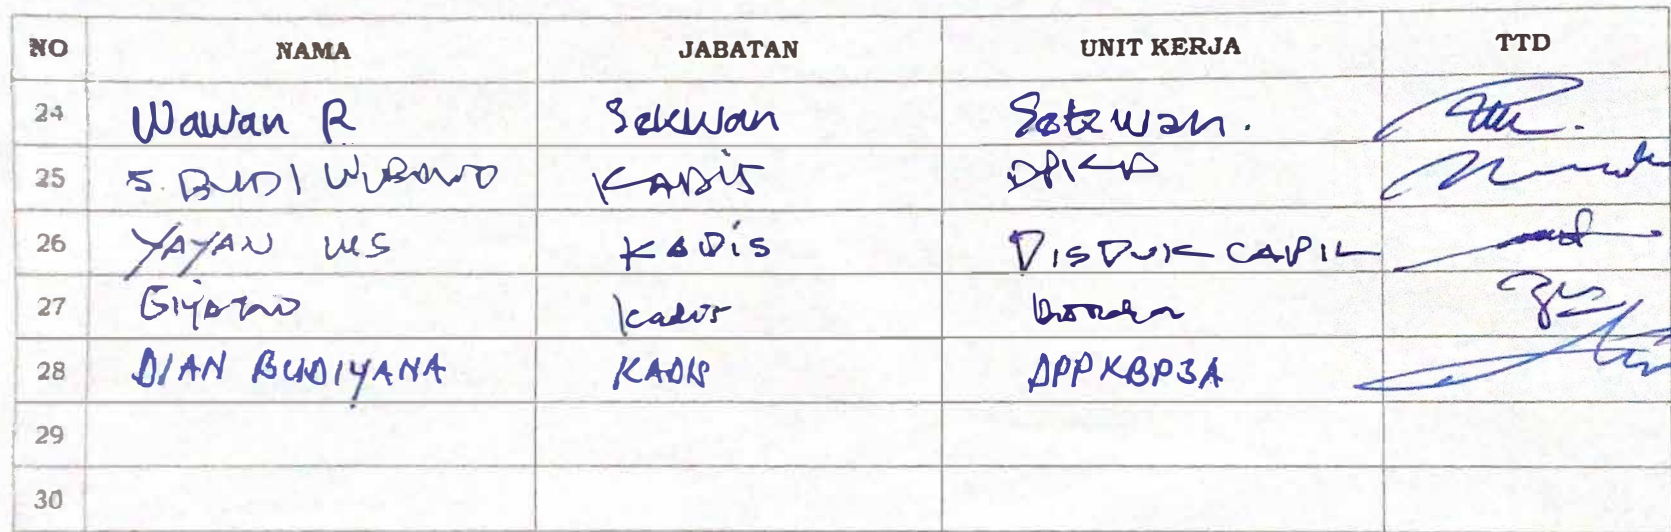 NO NAMA JABATAN UNIT KERJA TTD
24 Wawan R Sekwan Setewan.
25 S. BUDI WIBOWO KADIS DPKP
26 YAYAN MS KADIS DISDUKCAPIL
27 Giyatno Kadis
28 DIAN BUDIYANA KADIS DPPKBP3A
29
30